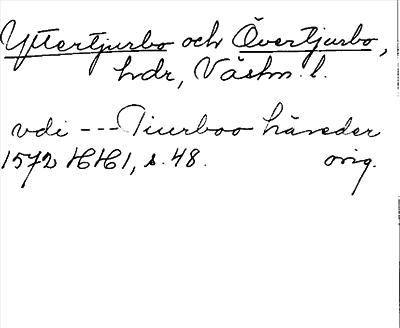 Yttertjurbo och Övertjurbo,
hdr, Västm. l.
vdi --- Tiurboo häreder
1572 HH1, s. 48. orig.